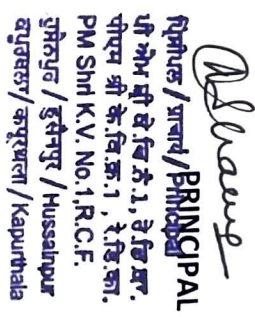 ਪ੍ਰਿੰਸੀਪਲ / प्राचार्य / Principal
PRINCIPAL
ਪੀ ਐਮ ਸ਼੍ਰੀ ਕੇ.ਵਿ.ਨੰ.1, ਰੇ.ਡਿ.ਫ਼.
पीएम श्री के.वि.क्र.1, रे.डि.का.
PM Shri K.V. No.1,R.C.F.
ਹੁਸੈਨਪੁਰ / हुसैनपुर / Hussainpur
ਕਪੂਰਥਲਾ / कपूरथला / Kapurthala